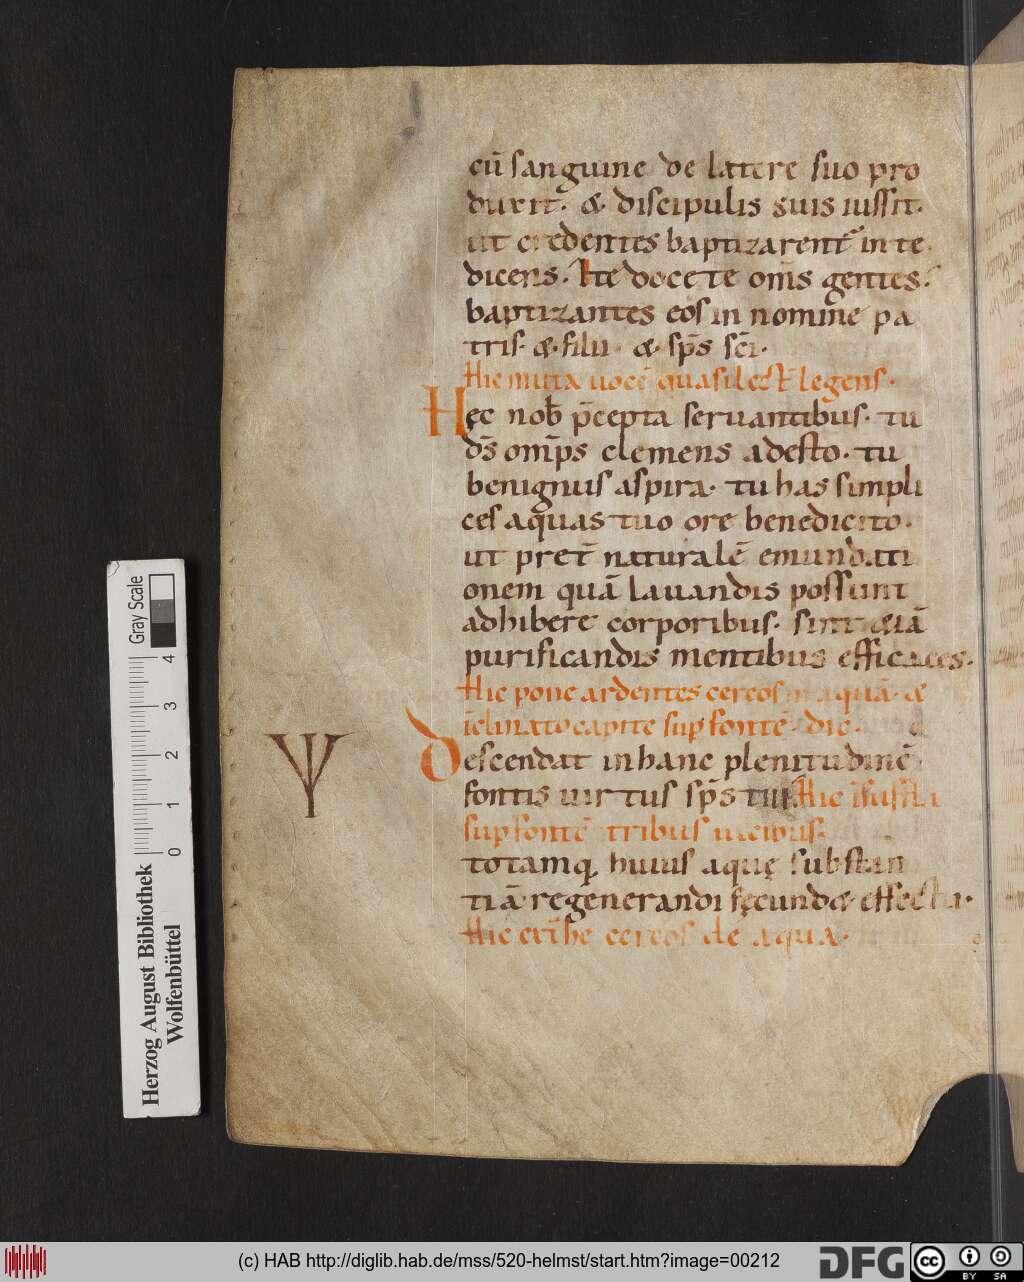 cū sanguine de latere suo pro
duxit· & discipulis suis iussit·
ut credentes baptizarent̄ in te
dicens· Ite docete om̄s gentes·
baptizantes eos in nomine pa
tris· & filii· & sp̄s sc̄i·
Hic muta uocē quasi lect̄ legens·
Hęc nob̄ p̄cepta seruantibus· tu
d̄s om̄ps clemens adesto· tu
benignus aspira· tu has simpli
ces aquas tuo ore benedicito·
ut pret̄ naturalē emundati
onem quā lauandis possunt
adhibere corporibus· sint &iā
purificandis mentibus efficaces·
Hic pone ardentes cereos in aquā· &
īclinato capite sup fontē· dic·
Descendat in hanc plenitudinē
fontis uirtus sp̄s tui· Hic īsuffla
sup fontē tribus uicibus·
totamq, huius aquę substan
tiā regenerandi fęcund& effectu·
Hic
cereos de aqua·
Ψ
Gray Scale
0 1 2 3 4
Herzog August Bibliothek
Wolfenbüttel
(c) HAB http://diglib.hab.de/mss/520-helmst/start.htm?image=00212
DFG
cc
BY SA